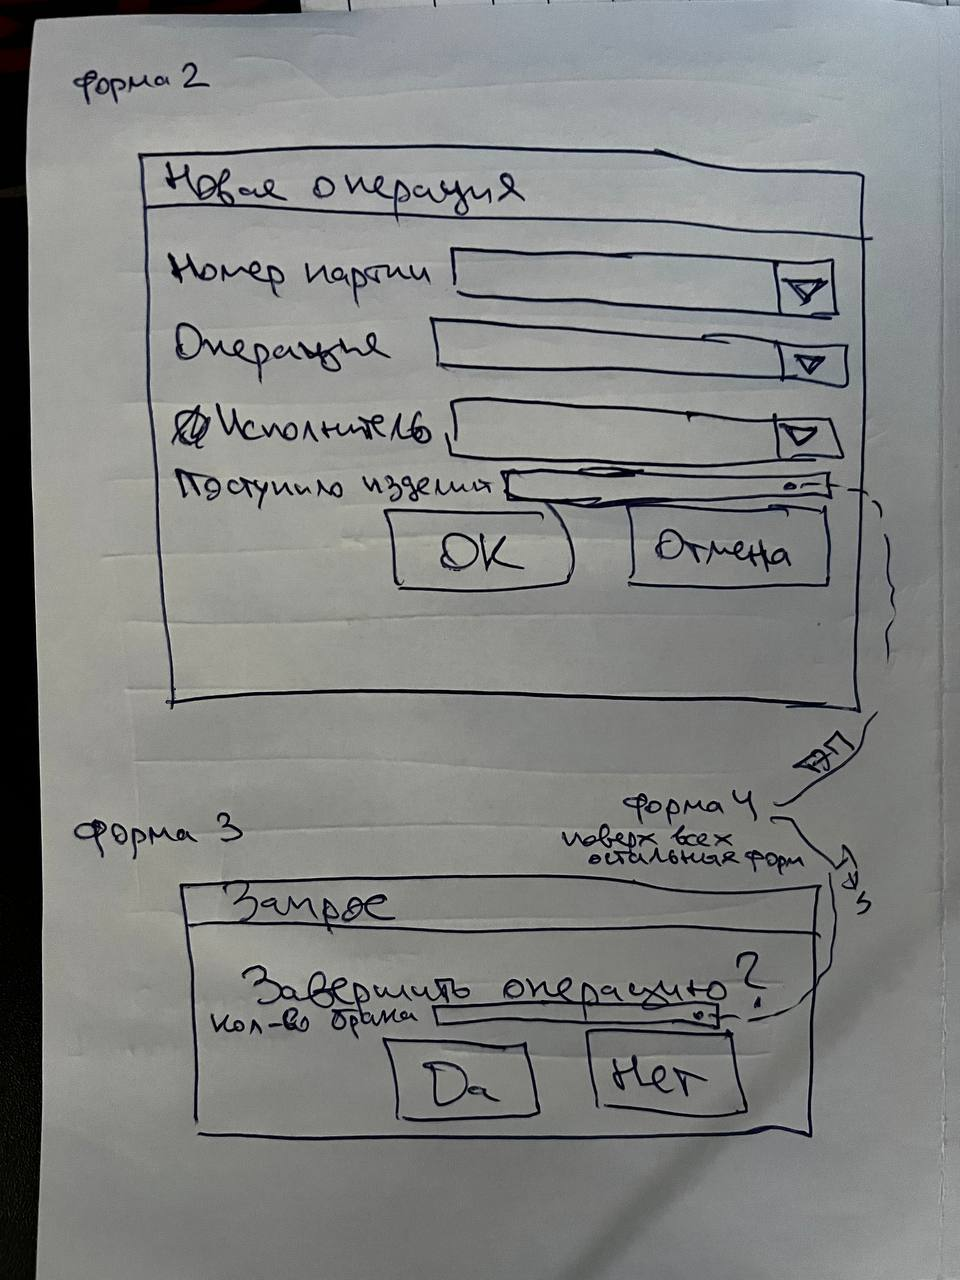 Форма 2
Новая операция
Номер партии
Операция
Исполнитель
Поступило изделий
ОК
Отмена
Форма 4
поверх всех
остальных форм
Форма 3
Запрос
Завершить операцию?
Кол-во брака
Да
Нет